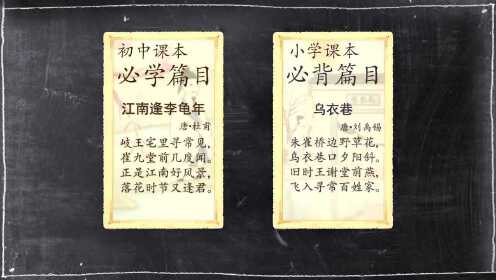 初中课本
必学篇目
江南逢李龟年
唐·杜甫
岐王宅里寻常见，
崔九堂前几度闻。
正是江南好风景，
落花时节又逢君。
小学课本
必背篇目
乌衣巷
唐·刘禹锡
朱雀桥边野草花，
乌衣巷口夕阳斜。
旧时王谢堂前燕，
飞入寻常百姓家。